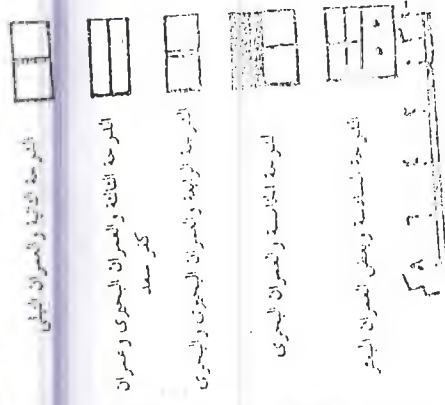 المرحلة الثانية والعمران القبلى
المرحلة الثالثة والعمران البحرى وعمران
كفر سعد
المرحلة الرابعة والعمران البحرى والبحرى
المرحلة الخامسة والعمران البحرى
المرحلة السادسة وبعض العمران